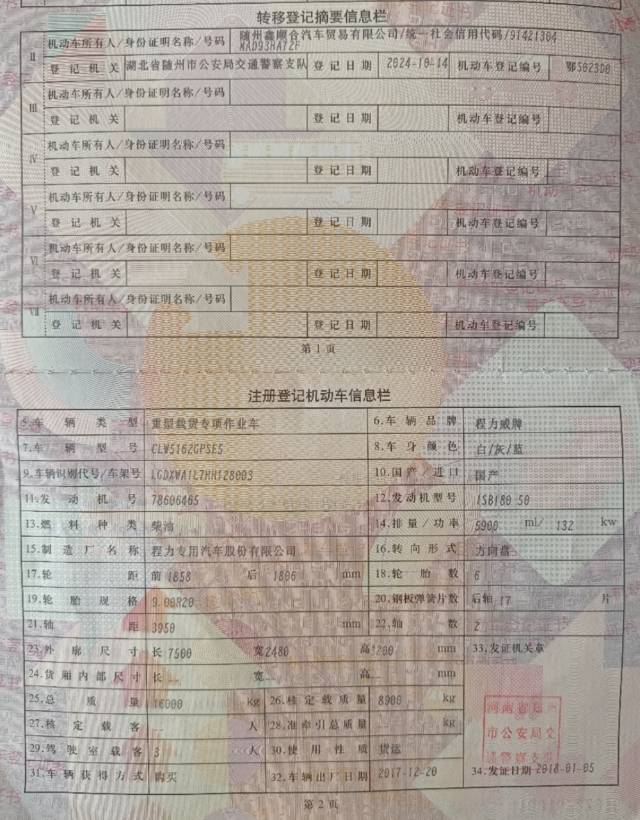 转移登记摘要信息栏
II 机动车所有人/身份证明名称/号码 随州鑫顺合汽车贸易有限公司/统一社会信用代码/91421304
登记机关 湖北省随州市公安局交通警察支队 登记日期 2024-10-14 机动车登记编号
III 机动车所有人/身份证明名称/号码
登记机关 登记日期 机动车登记编号
IV 机动车所有人/身份证明名称/号码
登记机关 登记日期 机动车登记编号
V 机动车所有人/身份证明名称/号码
登记机关 登记日期 机动车登记编号
VI 机动车所有人/身份证明名称/号码
登记机关 登记日期 机动车登记编号
VII 机动车所有人/身份证明名称/号码
登记机关 登记日期 机动车登记编号
第1页
注册登记机动车信息栏
5.车辆类型 重型载货专项作业车 6.车辆品牌 程力威牌
7.车辆型号 CLW5162GPSE5 8.车身颜色 白/灰/蓝
9.车辆识别代号/车架号 10.国产/进口 国产
11.发动机号 78606465 12.发动机型号 ISB180 50
13.燃料种类 柴油 14.排量/功率 5900 ml/ 132 kw
15.制造厂名称 程力专用汽车股份有限公司 16.转向形式 方向盘
17.轮距 前 1858 后 1806 mm 18.轮胎数 6
19.轮胎规格 9.00R20 20.钢板弹簧片数 后轴 17 片
21.轴距 3950 mm 22.轴数 2
23.外廓尺寸 长 7500 宽 2480 高 mm 33.发证机关章
24.货厢内部尺寸 长 宽 高 mm
25.总质量 16000 kg 26.核定载质量 8900 kg
27.核定载客 人 28.准牵引总质量 kg
29.驾驶室载客 3 人 30.使用性质 货运
31.车辆获得方式 购买 32.车辆出厂日期 2017-12-20 34.发证日期 2018-01-05
第2页